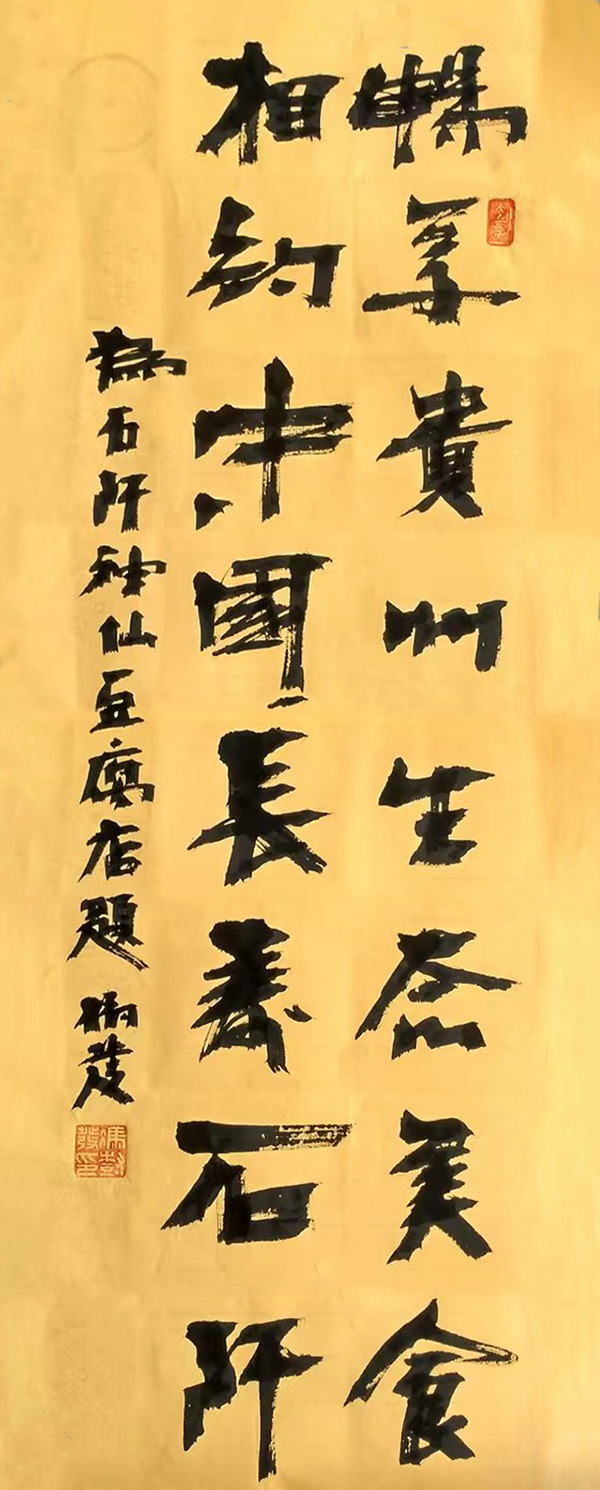 暢享貴州生态美食
相約中國長壽石阡
為石阡神仙豆腐店題 樹茂